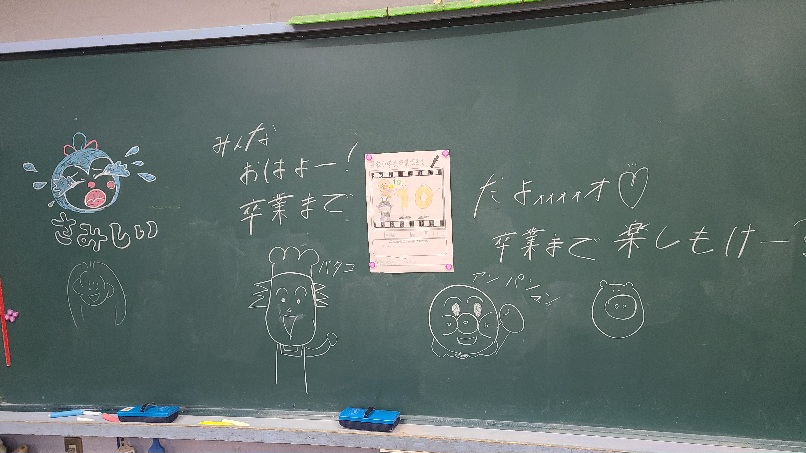 みんな
おはよー！
卒業まで
10
だよォォォォオ♡
卒業まで 楽しもけー
さみしい
バタコ
アンパンマン